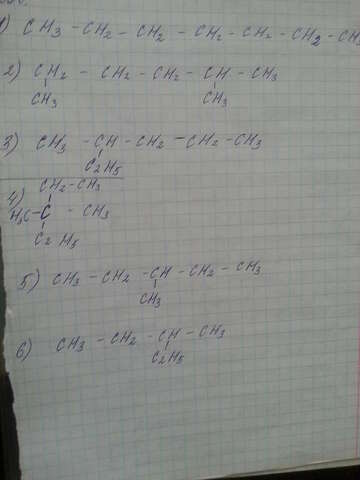 1) CH3 - CH2 - CH2 - CH2 - CH2 - CH2 - CH3
2) CH2 - CH2 - CH2 - CH - CH3
CH3 CH3
3) CH3 - CH - CH2 - CH2 - CH3
C2H5
4) CH2 - CH3
H3C - C - CH3
C2H5
5) CH3 - CH2 - CH - CH2 - CH3
CH3
6) CH3 - CH2 - CH - CH3
C2H5